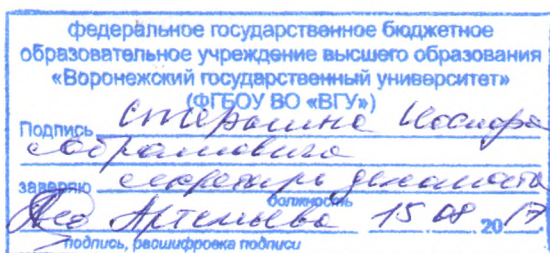 федеральное государственное бюджетное
образовательное учреждение высшего образования
«Воронежский государственный университет»
(ФГБОУ ВО «ВГУ»)
Подпись Стернина Иосифа
Абрамовича
заверяю секретарь деканата
должность
Артемьева 15 08 2017
подпись, расшифровка подписи